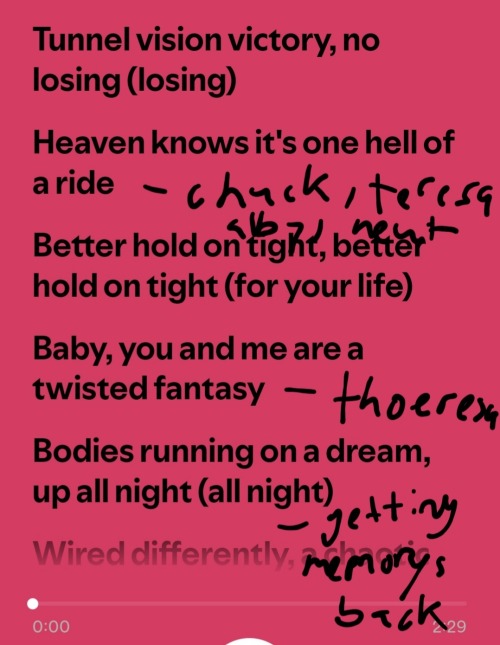 Tunnel vision victory, no
losing (losing)
Heaven knows it's one hell of
a ride - chuck, teresa
alby, newt
Better hold on tight, better
hold on tight (for your life)
Baby, you and me are a
twisted fantasy - thoeresa
Bodies running on a dream,
up all night (all night)
- getting
Wired differently, a chaotic
memorys
back
0:00
2:29